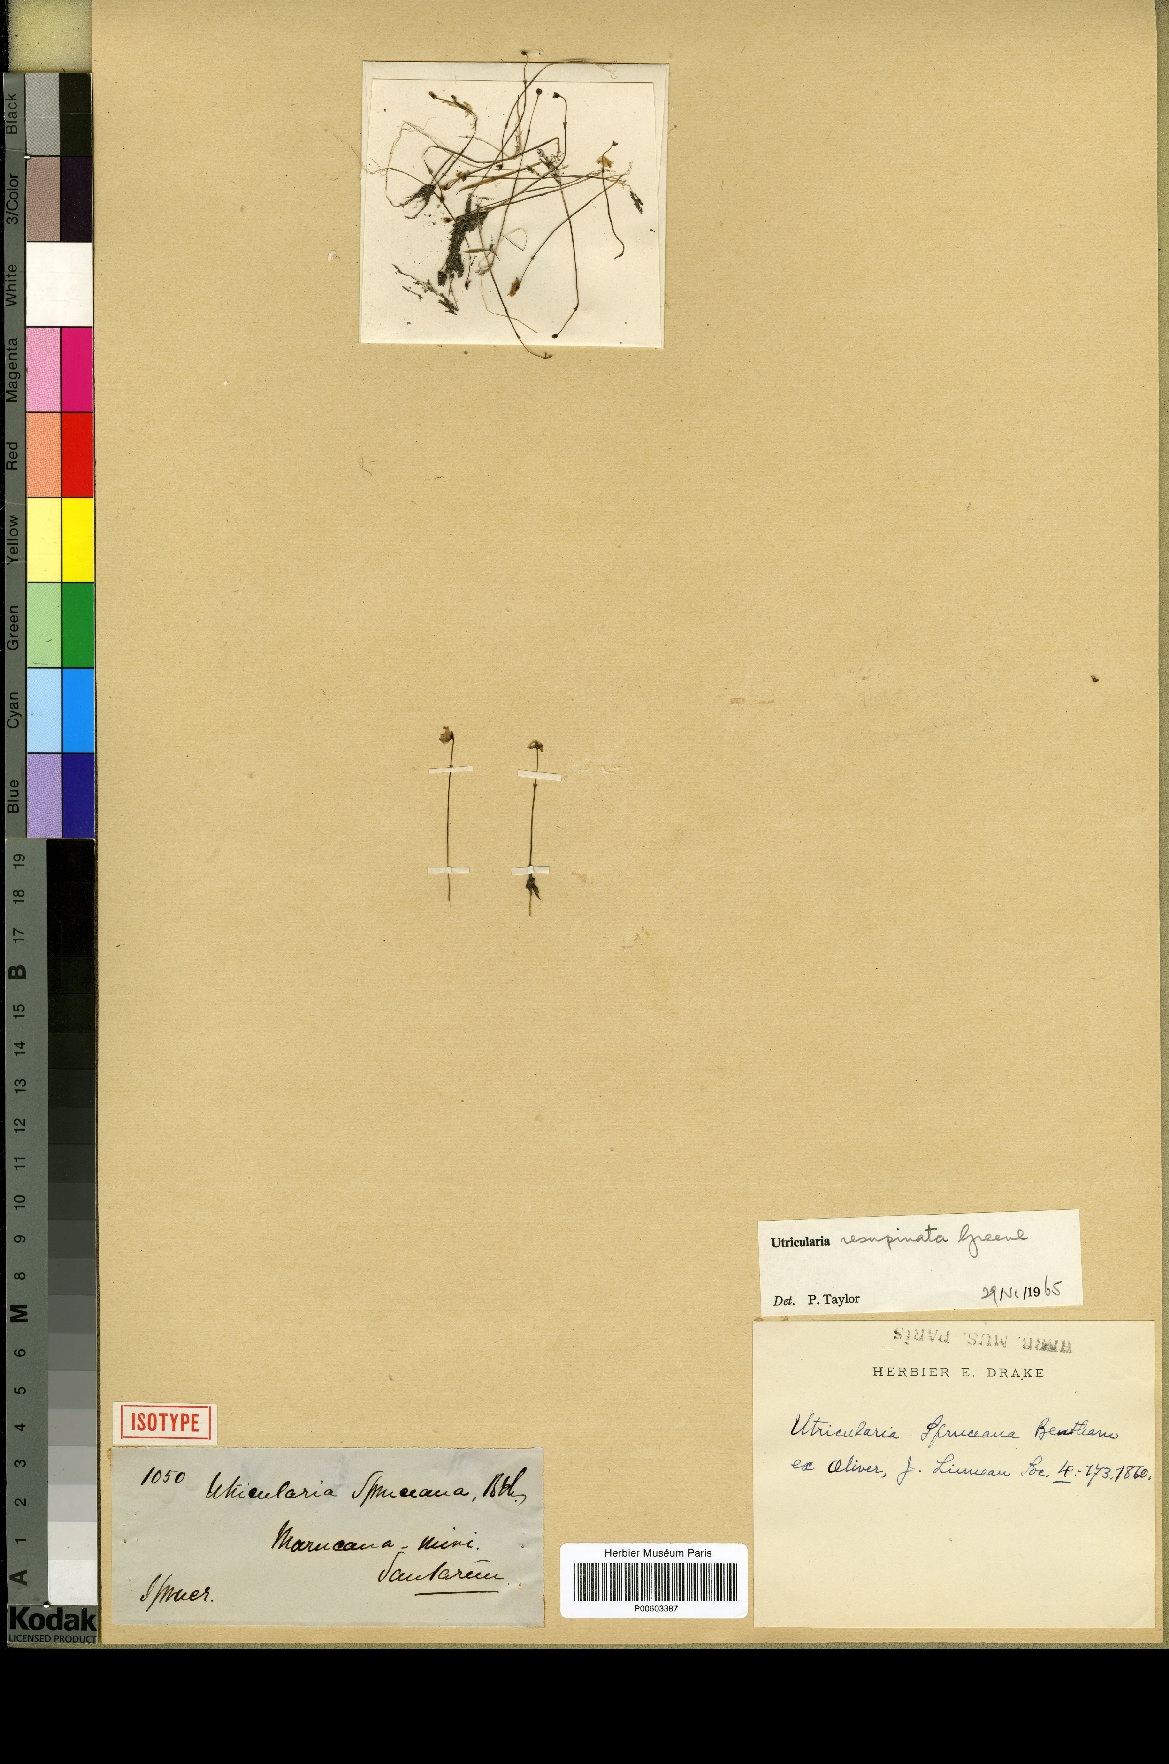 Black
3/Color
White
Magenta
Red
Yellow
Green
Cyan
Blue
19
18
17
B
15
14
13
12
11
10
9
8
M
6
5
4
3
2
1
A
Kodak
LICENSED PRODUCT
Utricularia resupinata Greene
Det. P. Taylor 29 /1965
HERB. MUS. PARIS
HERBIER E. DRAKE
Utricularia Spruceana Bentham
ex Oliver, J. Linnean Soc. 4:173.1860.
ISOTYPE
1050 Utricularia Spruceana, Bth.
Santarem
Spruce.
Herbier Muséum Paris
P00603387